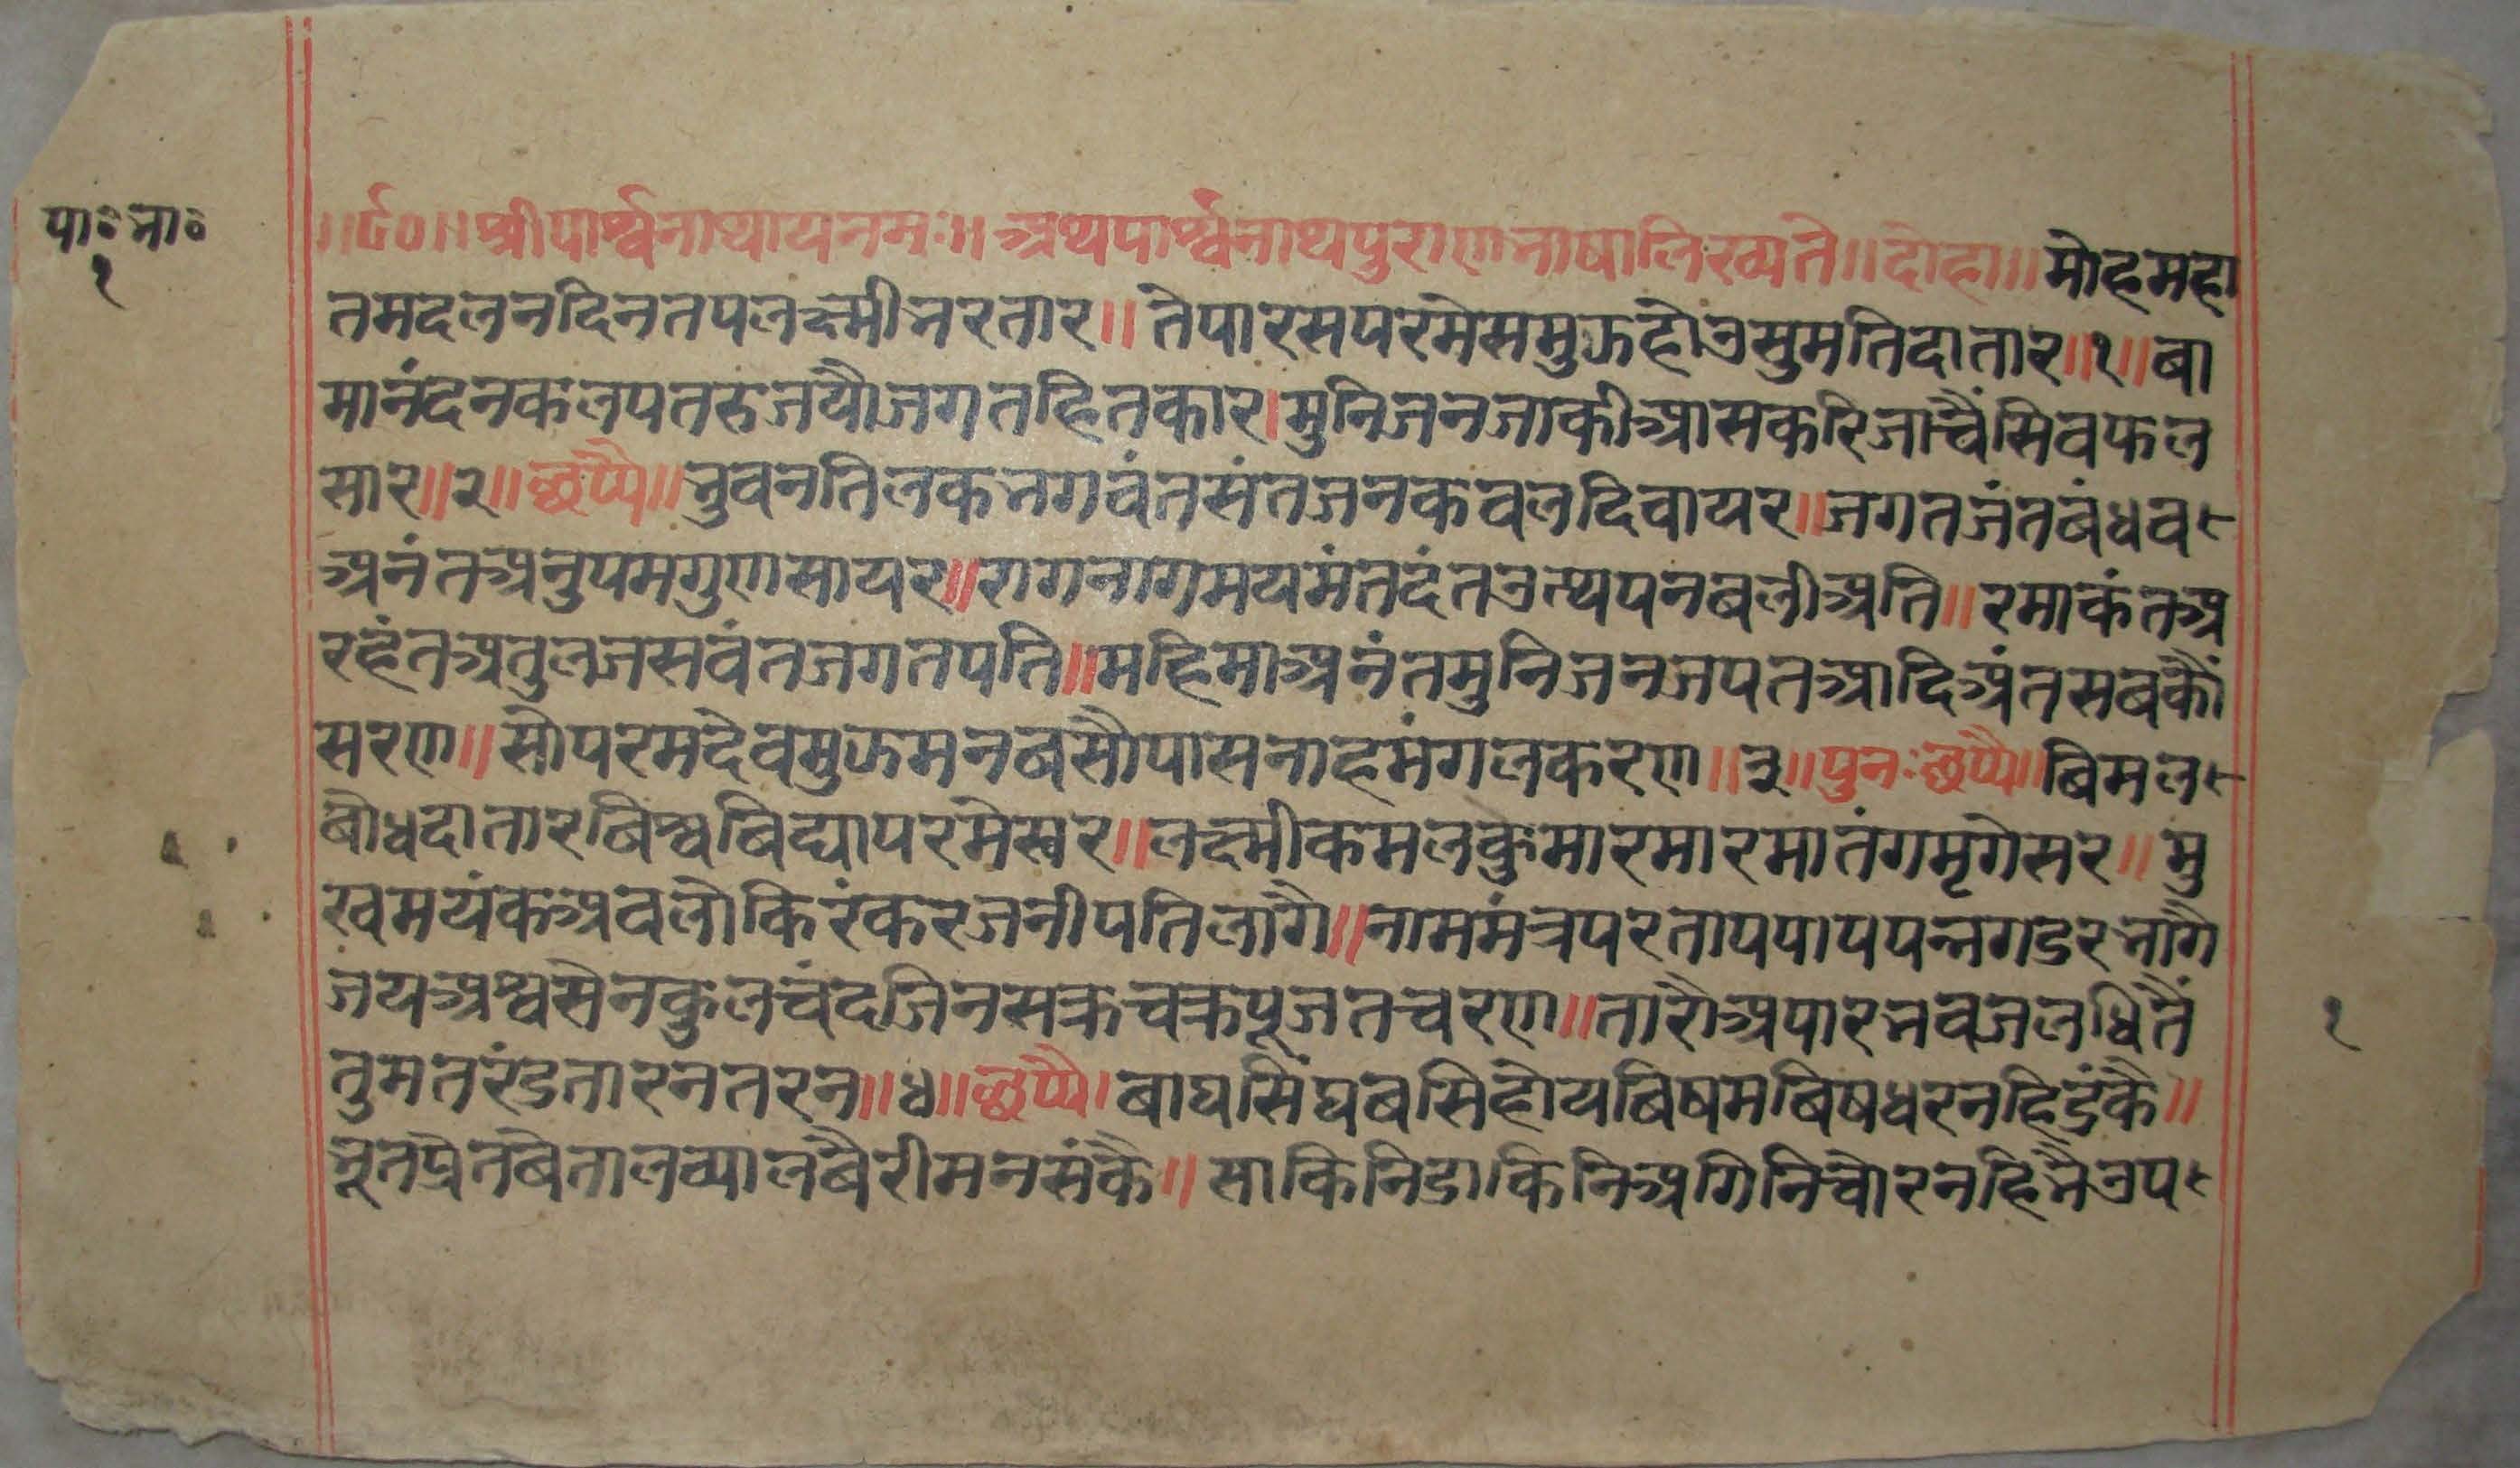 पा॰ ना॰
१
॥ र्द०॥ श्रीपार्श्वनाथायनमः॥ अथपार्श्वनाथपुराणभाषालिख्यते॥ दोहा॥ मोहमहा
तमदलनदिनतपलक्ष्मीभरतार॥ तेपारसपरमेसमुझहोउसुमतिदातार॥१॥ बा
मानंदनकलपतरुजयौजगतहितकार। मुनिजनजाकीआसकरिजाचैंसिवफल
सार॥२॥ छप्पै॥ भुवनतिलकभगवंतसंतजनकवलदिवायर॥ जगतजंतबंधव
अनंतअनुपमगुणसायर॥ रागनागमयमंतदंतउत्थपनबलीअति॥ रमाकंतअ
रहंतअतुलजसवंतजगतपति॥ महिमाअनंतमुनिजनजपतआदिअंतसबकौं
सरण॥ सोपरमदेवमुझमनबसौपासनाहमंगलकरण॥३॥ पुनःछप्पै॥ बिमल
बोधदातारबिश्वबिद्यापरमेस्वर॥ लक्ष्मीकमलकुमारमारमातंगमृगेसर॥ मु
खमयंकअवलोकिरंकरजनीपतिलागै॥ नाममंत्रपरतापपापपन्नगडरभागै
जयअश्वसेनकुलचंदजिनसक्रचक्रपूजतचरण॥ तारौअपारभवजलधितैं
तुमतरंडतारनतरन॥४॥ छप्पै। बाघसिंघबसिहोयबिषमबिषधरनहिडंकै॥
भूतप्रेतबेतालव्यालबैरीमनसंकै॥ साकिनिडाकिनिअगिनिचोरनहिभैउप
१